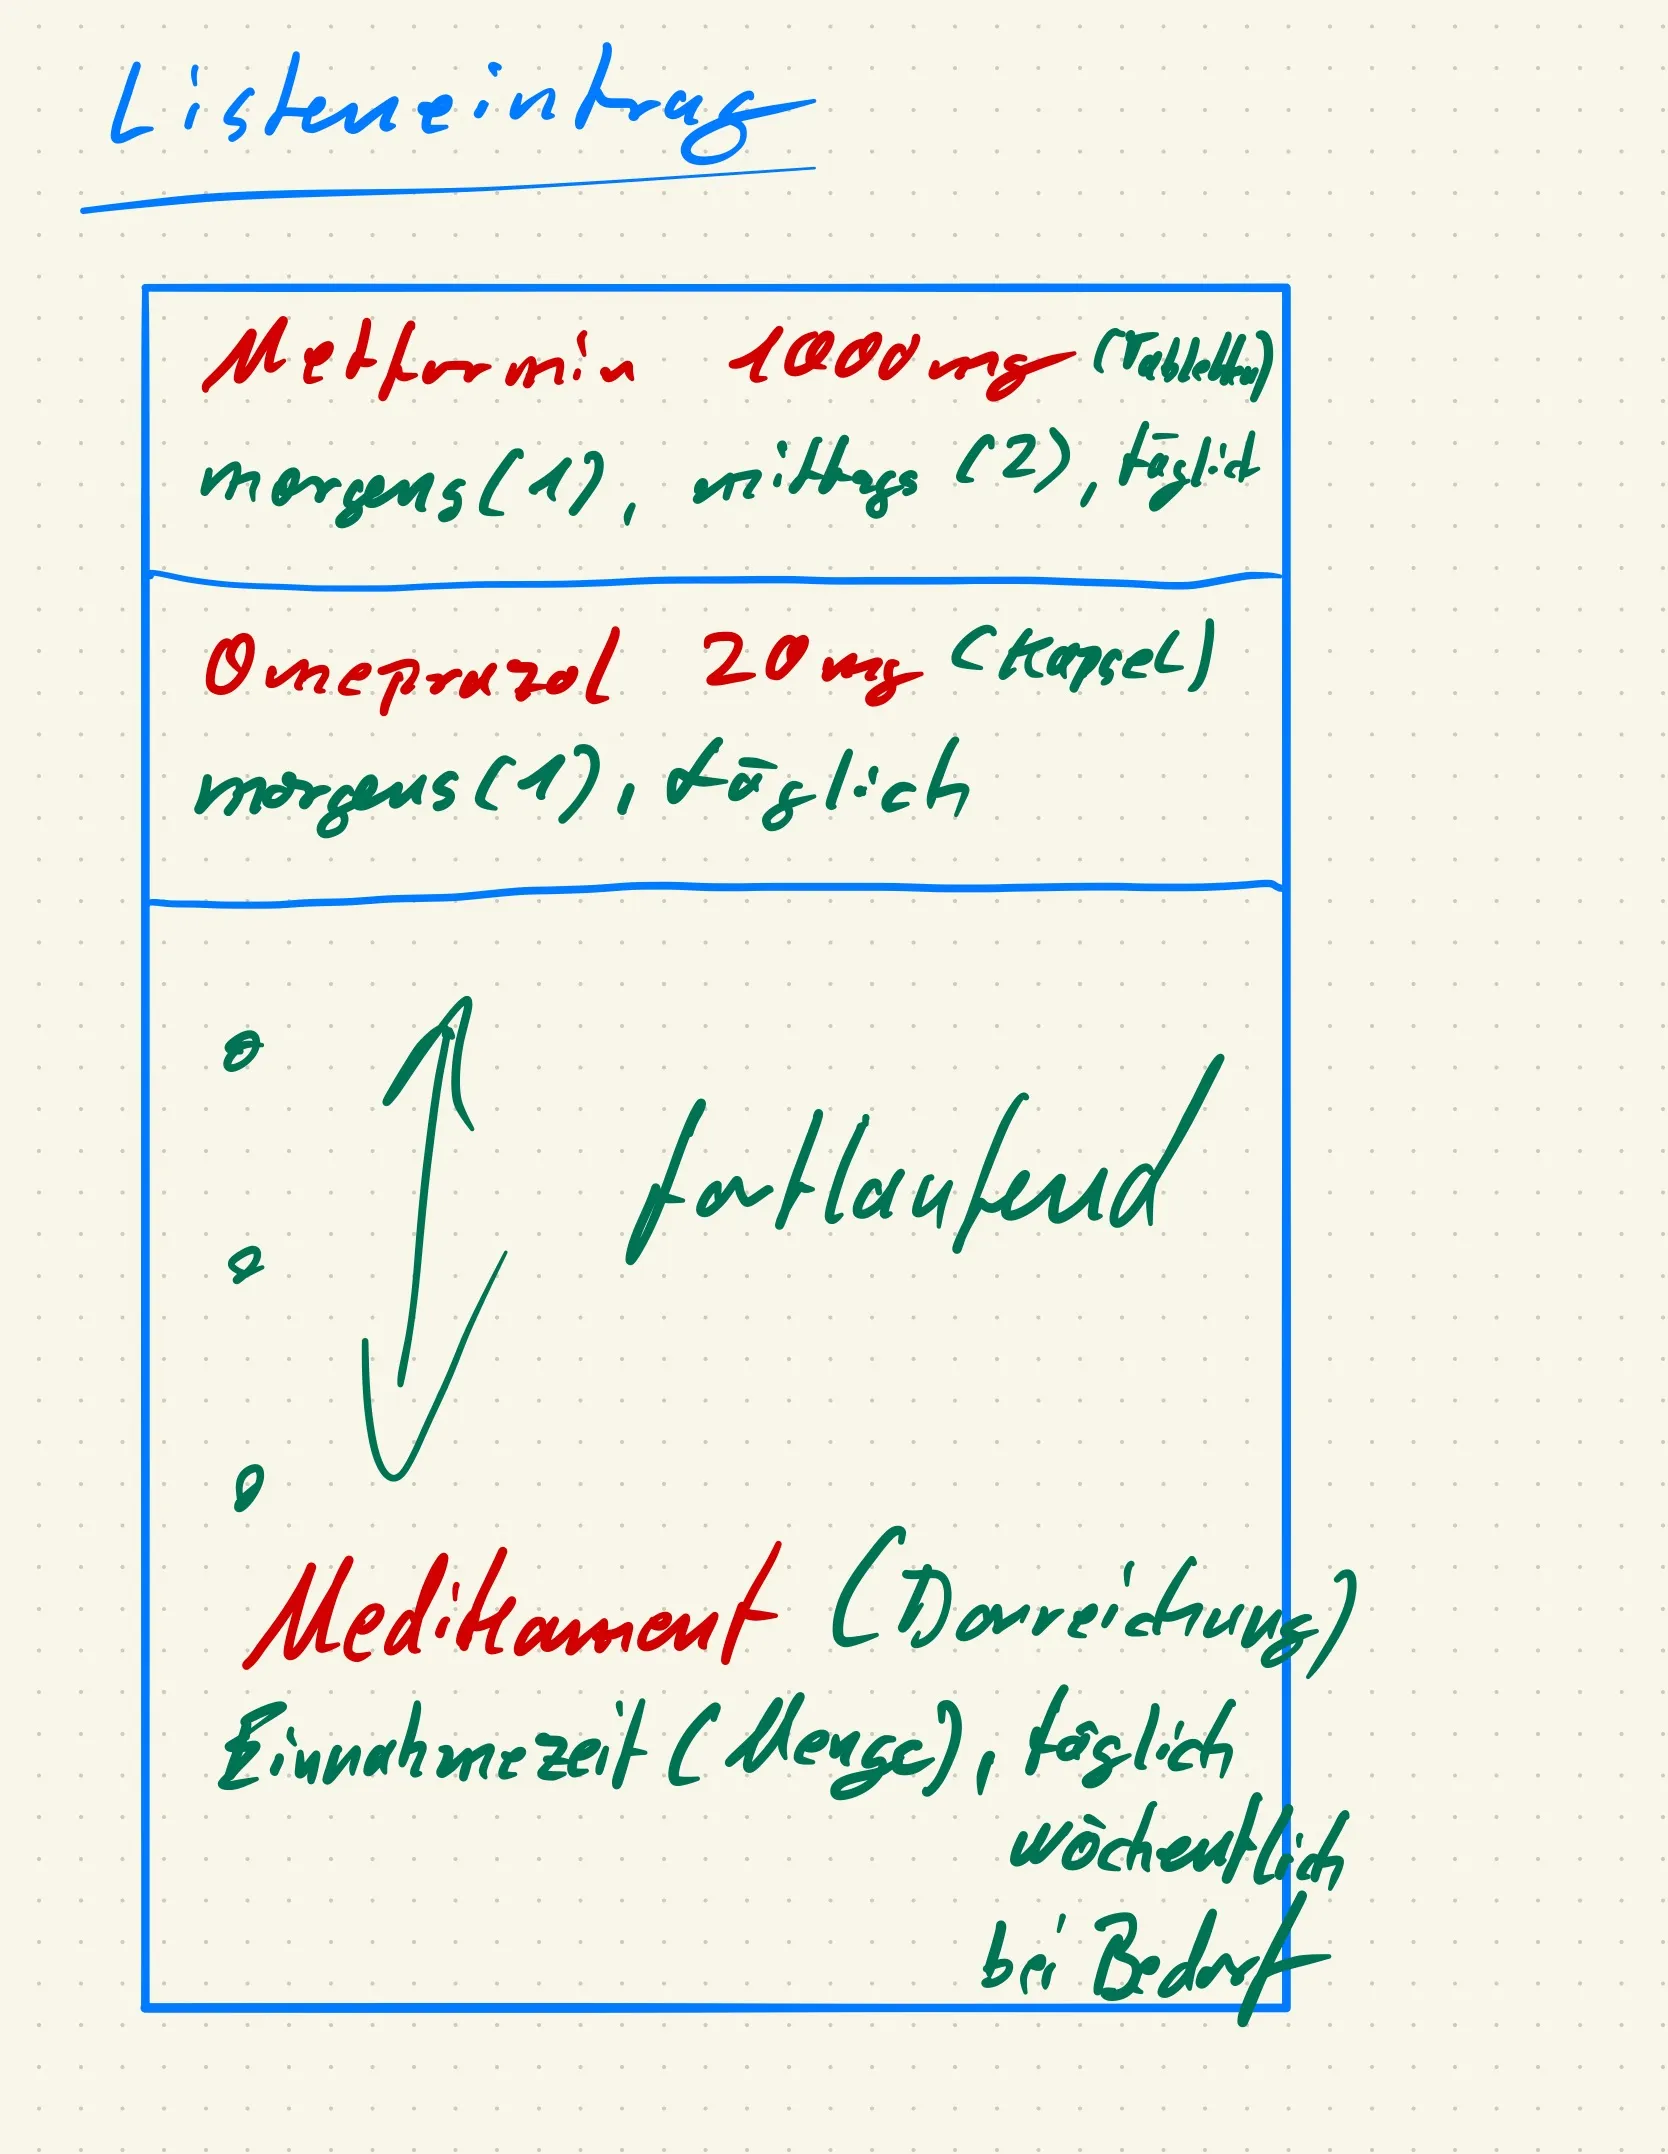 Listeneintrag
Metformin 1000mg (Tabletten)
morgens (1), mittags (2), täglich
Omeprazol 20mg (Kapsel)
morgens (1), täglich
fortlaufend
Medikament (Darreichung)
Einnahmezeit (Menge), täglich
wöchentlich
bei Bedarf